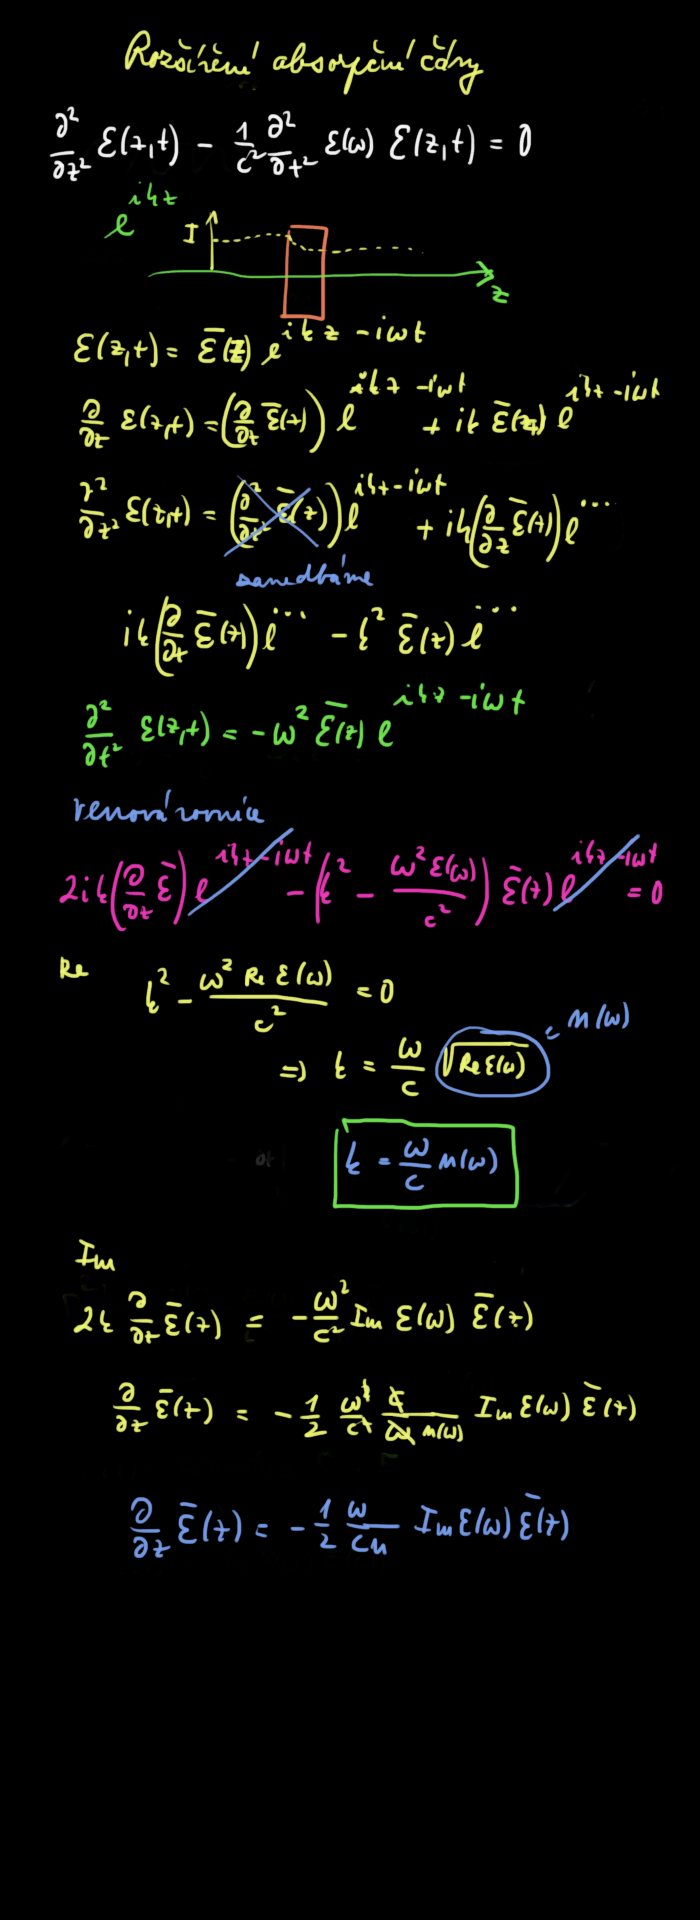 Rozšíření absorpční čáry
∂²/∂z² E(z,t) − 1/c² ∂²/∂t² ε(ω) E(z,t) = 0
e^{ikz}
I
z
E(z,t) = Ē(z) e^{ikz−iωt}
∂/∂z E(z,t) = (∂/∂z Ē(z)) e^{ikz−iωt} + ik Ē(z) e^{ikz−iωt}
∂²/∂z² E(z,t) = (∂²/∂z² Ē(z)) e^{ikz−iωt} + ik(∂/∂z Ē(z)) e^{...}
zanedbáme
ik(∂/∂z Ē(z)) e^{...} − k² Ē(z) e^{...}
∂²/∂t² E(z,t) = −ω² Ē(z) e^{ikz−iωt}
vlnová rovnice
2ik(∂/∂z Ē) e^{ikz−iωt} − (k² − ω² ε(ω)/c²) Ē(z) e^{ikz−iωt} = 0
Re k² − ω² Re ε(ω)/c² = 0
⇒ k = ω/c √(Re ε(ω)) = n(ω)
k = ω/c n(ω)
Im
2k ∂/∂z Ē(z) = −ω²/c² Im ε(ω) Ē(z)
∂/∂z Ē(z) = −1/2 ω²/c² c/(ω n(ω)) Im ε(ω) Ē(z)
∂/∂z Ē(z) = −1/2 ω/(cn) Im ε(ω) Ē(z)